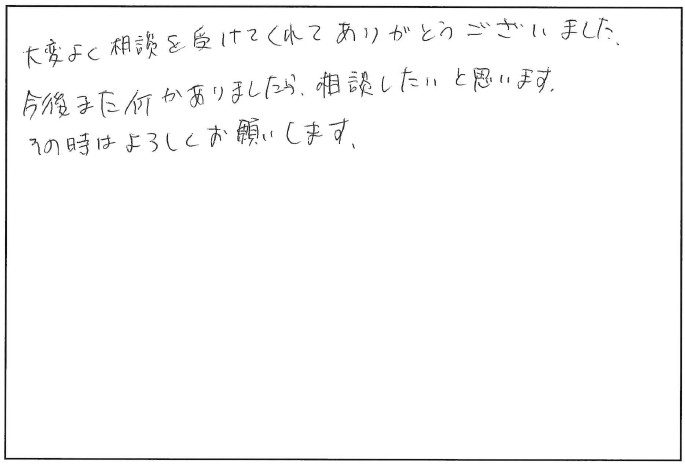 大変よく相談を受けてくれてありがとうございました、
今後また何かありましたら、相談したいと思います。
その時はよろしくお願いします、